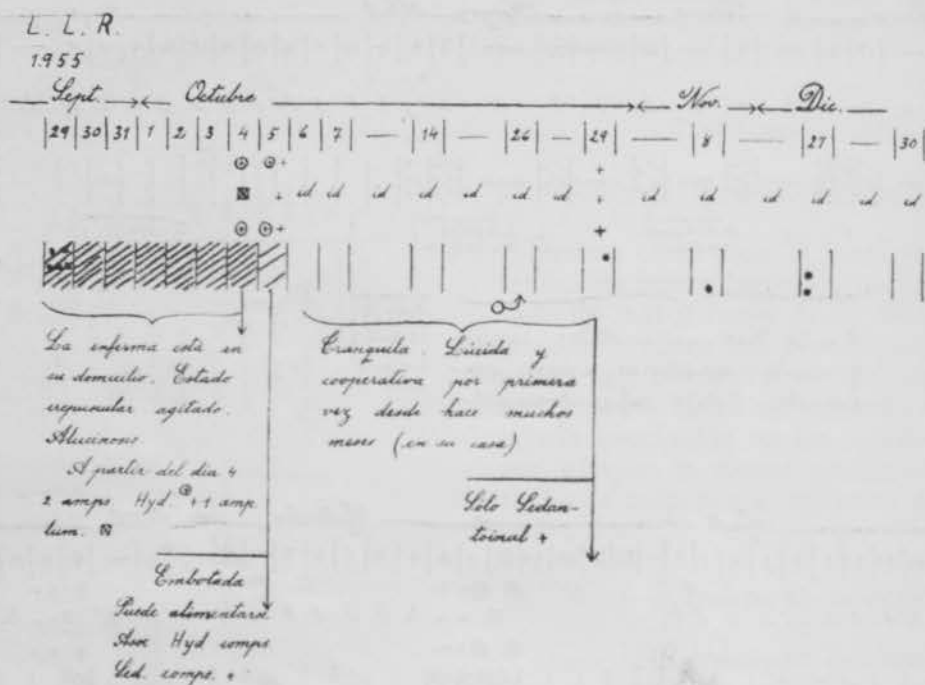 L. L. R.
1955
Sept. Octubre Nov. Dic.
29 30 31 1 2 3 4 5 6 7 — 14 — 26 — 29 — 8 — 27 — 30
+
+
+ id id id id id id id + id id id id id
+ +
La enferma está en
su domicilio. Estado
crepuscular agitado.
Alucinosis
A partir del día 4
2 amps. Hyd. + 1 amp.
lum.
Embotada
Puede alimentarse
Asoc Hyd comps
Sed. comps. +
Tranquila. Lúcida y
cooperativa por primera
vez desde hace muchos
meses (en su casa)
Sólo Sedan-
toinal +